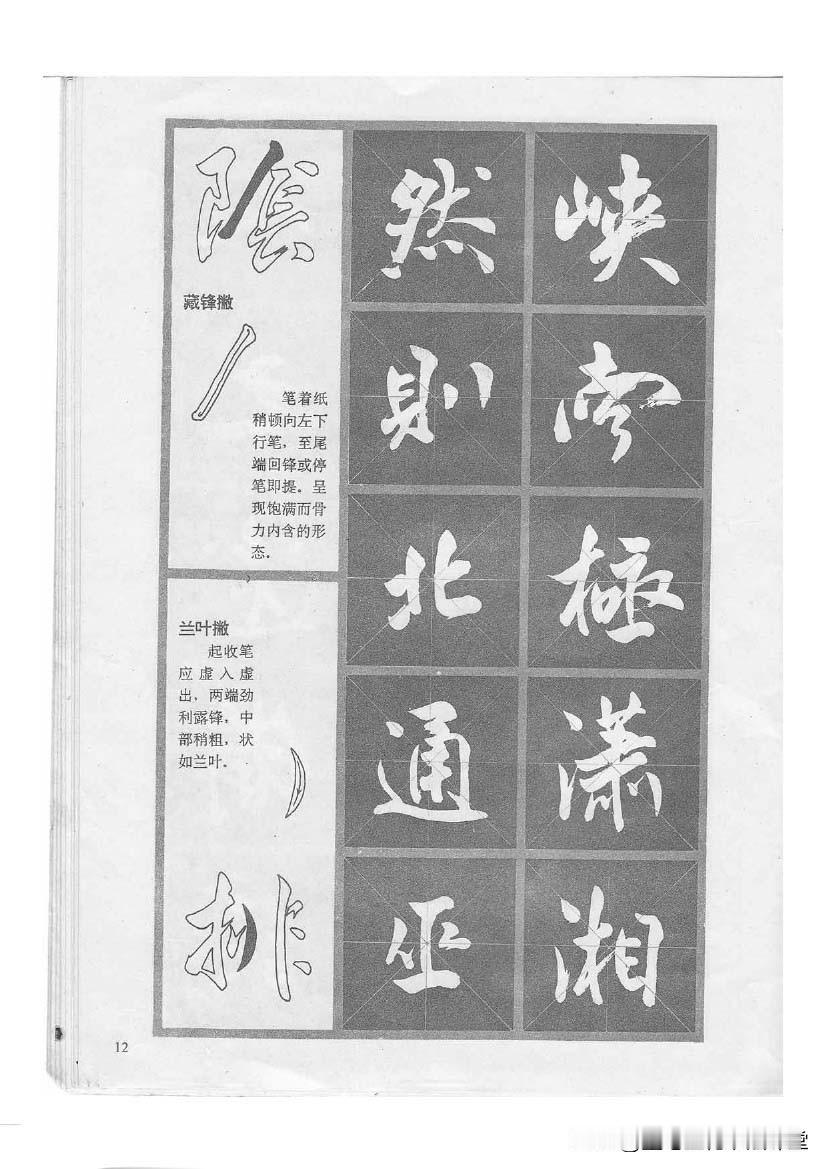 陰
藏锋撇
笔着纸
稍顿向左下
行笔，至尾
端回锋或停
笔即提。呈
现饱满而骨
力内含的形
态。
兰叶撇
起收笔
应虚入虚
出，两端劲
利露锋，中
部稍粗，状
如兰叶。
排
然則北通巫
峽南極瀟湘
12